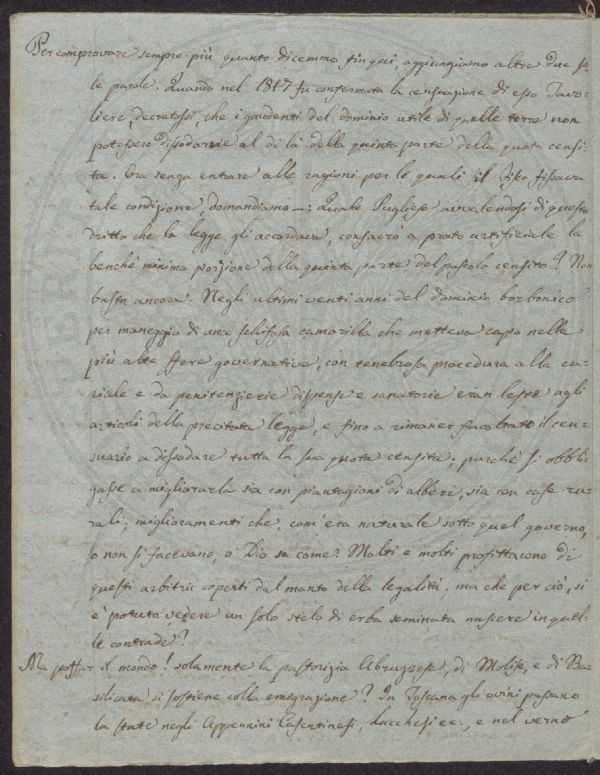 Per comprovare sempre più quanto dicemmo fin qui, aggiungiamo altre due so-
le parole. Quando nel 1817 fu confermata la censuazione di esso Tavo-
liere, decretossi, che i gaudenti del dominio utile di quelle terre non
potessero dissodarne al di là della quinta parte della quota censi-
ta. Ora senza entrare alle ragioni per le quali il Fisco fissava
tale condizione, domandiamo —: Quale Pugliese avvalendosi di questo
dritto che la legge gli accordava, consacrò a prato artificiale la
benchè minima porzione della quinta parte del pascolo censito? Non
basta ancora. Negli ultimi venti anni del dominio borbonico
per maneggio di una schifosa camorilla che metteva capo nelle
più alte sfere governative, con tenebrosa procedura alla cu-
riale e da penitenzierie dispense e sanatorie eran leste agli
articoli della precitata legge, e fino a rimaner facoltato il cen-
suario a dissodare tutta la sua quota censita; purchè si obbli-
gasse a migliorarla sia con piantagioni di alberi, sia con case ru-
rali; miglioramenti che, com'era naturale sotto quel governo,
o non si facevano, o Dio sa come! Molti e molti profittarono di
questi arbitrii coperti dal manto della legalità, ma che per ciò, si
è potuto vedere un solo stelo di erba seminata nascere in quel-
le contrade?
Ma poffar il mondo! solamente la pastorizia Abruzzese, di Molise, e di Ba-
silicata si sostiene colla emigrazione? In Toscana gli ovini passano
la state negli Appennini Casentinesi, Lucchesi ec:, e nel verno